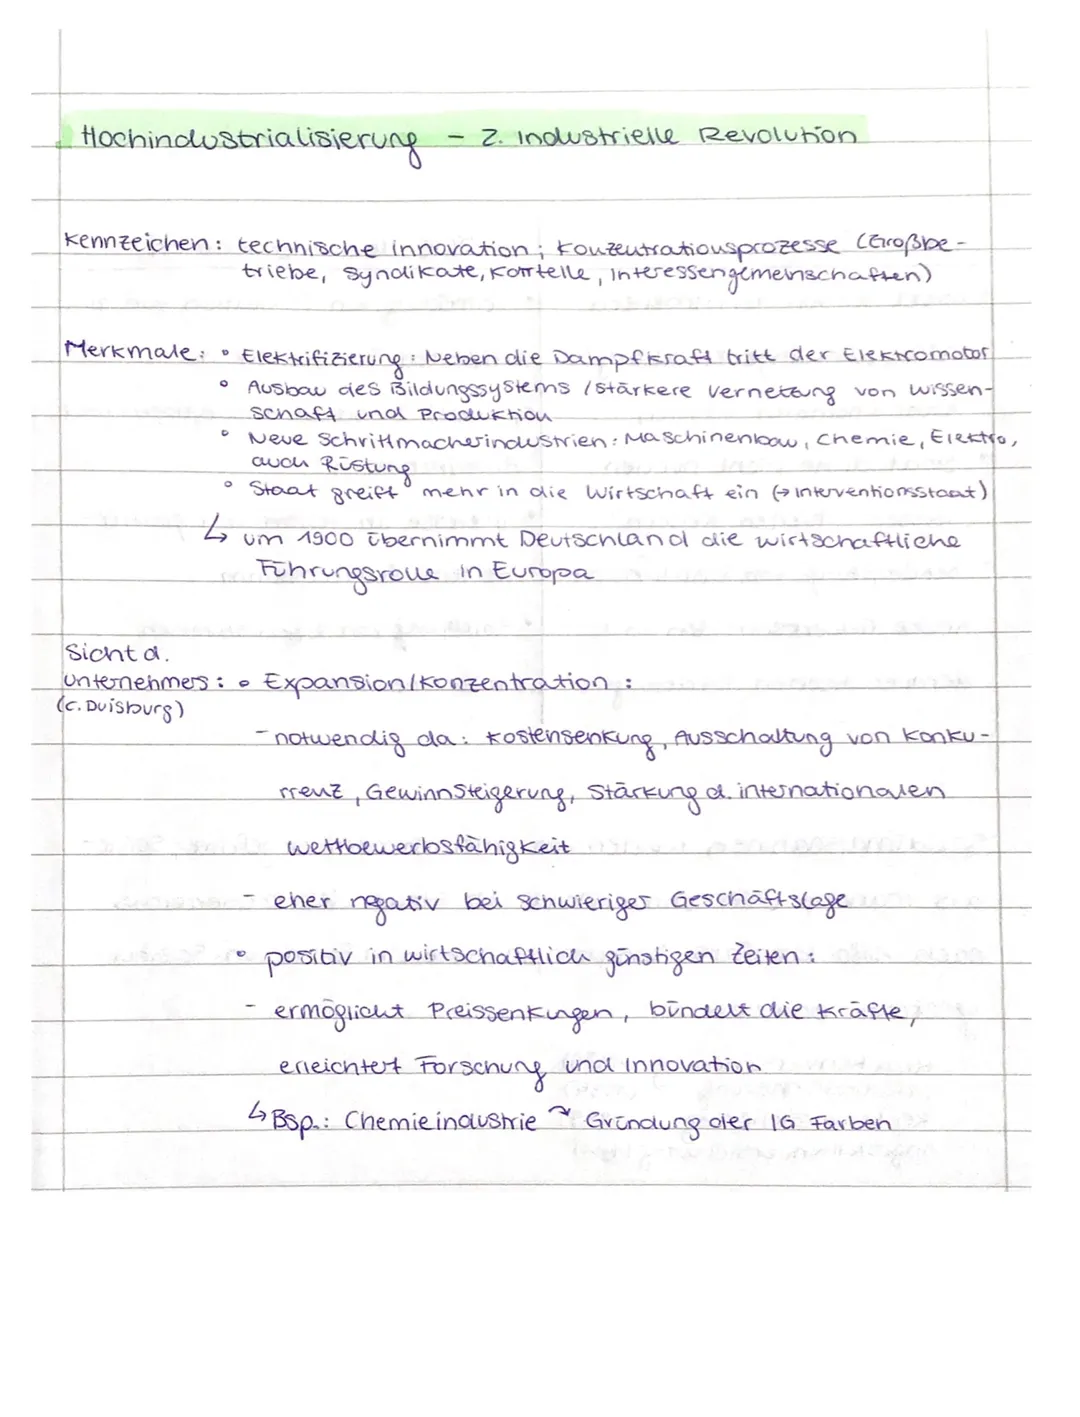 Hochindustrialisierung - 2. Industrielle Revolution
Kennzeichen: technische Innovation; Konzentrationsprozesse (Großbe-
triebe, Syndikate, Kartelle, Interessengemeinschaften)
Merkmale: ° Elektrifizierung: Neben die Dampfkraft tritt der Elektromotor
° Ausbau des Bildungssystems / stärkere Vernetzung von Wissen-
schaft und Produktion
° Neue Schrittmacherindustrien: Maschinenbau, Chemie, Elektro,
auch Rüstung
° Staat greift mehr in die Wirtschaft ein (→ Interventionsstaat)
↳ um 1900 übernimmt Deutschland die wirtschaftliche
Führungsrolle in Europa
Sicht d.
Unternehmers: ° Expansion/Konzentration:
(C. Duisburg)
- notwendig da: Kostensenkung, Ausschaltung von Konku-
rrenz, Gewinnsteigerung, Stärkung d. internationalen
Wettbewerbsfähigkeit
- eher negativ bei schwieriger Geschäftslage
° positiv in wirtschaftlich günstigen Zeiten:
- ermöglicht Preissenkungen, bündelt die Kräfte,
erleichtert Forschung und Innovation
↳ Bsp.: Chemieindustrie ↷ Gründung der IG Farben